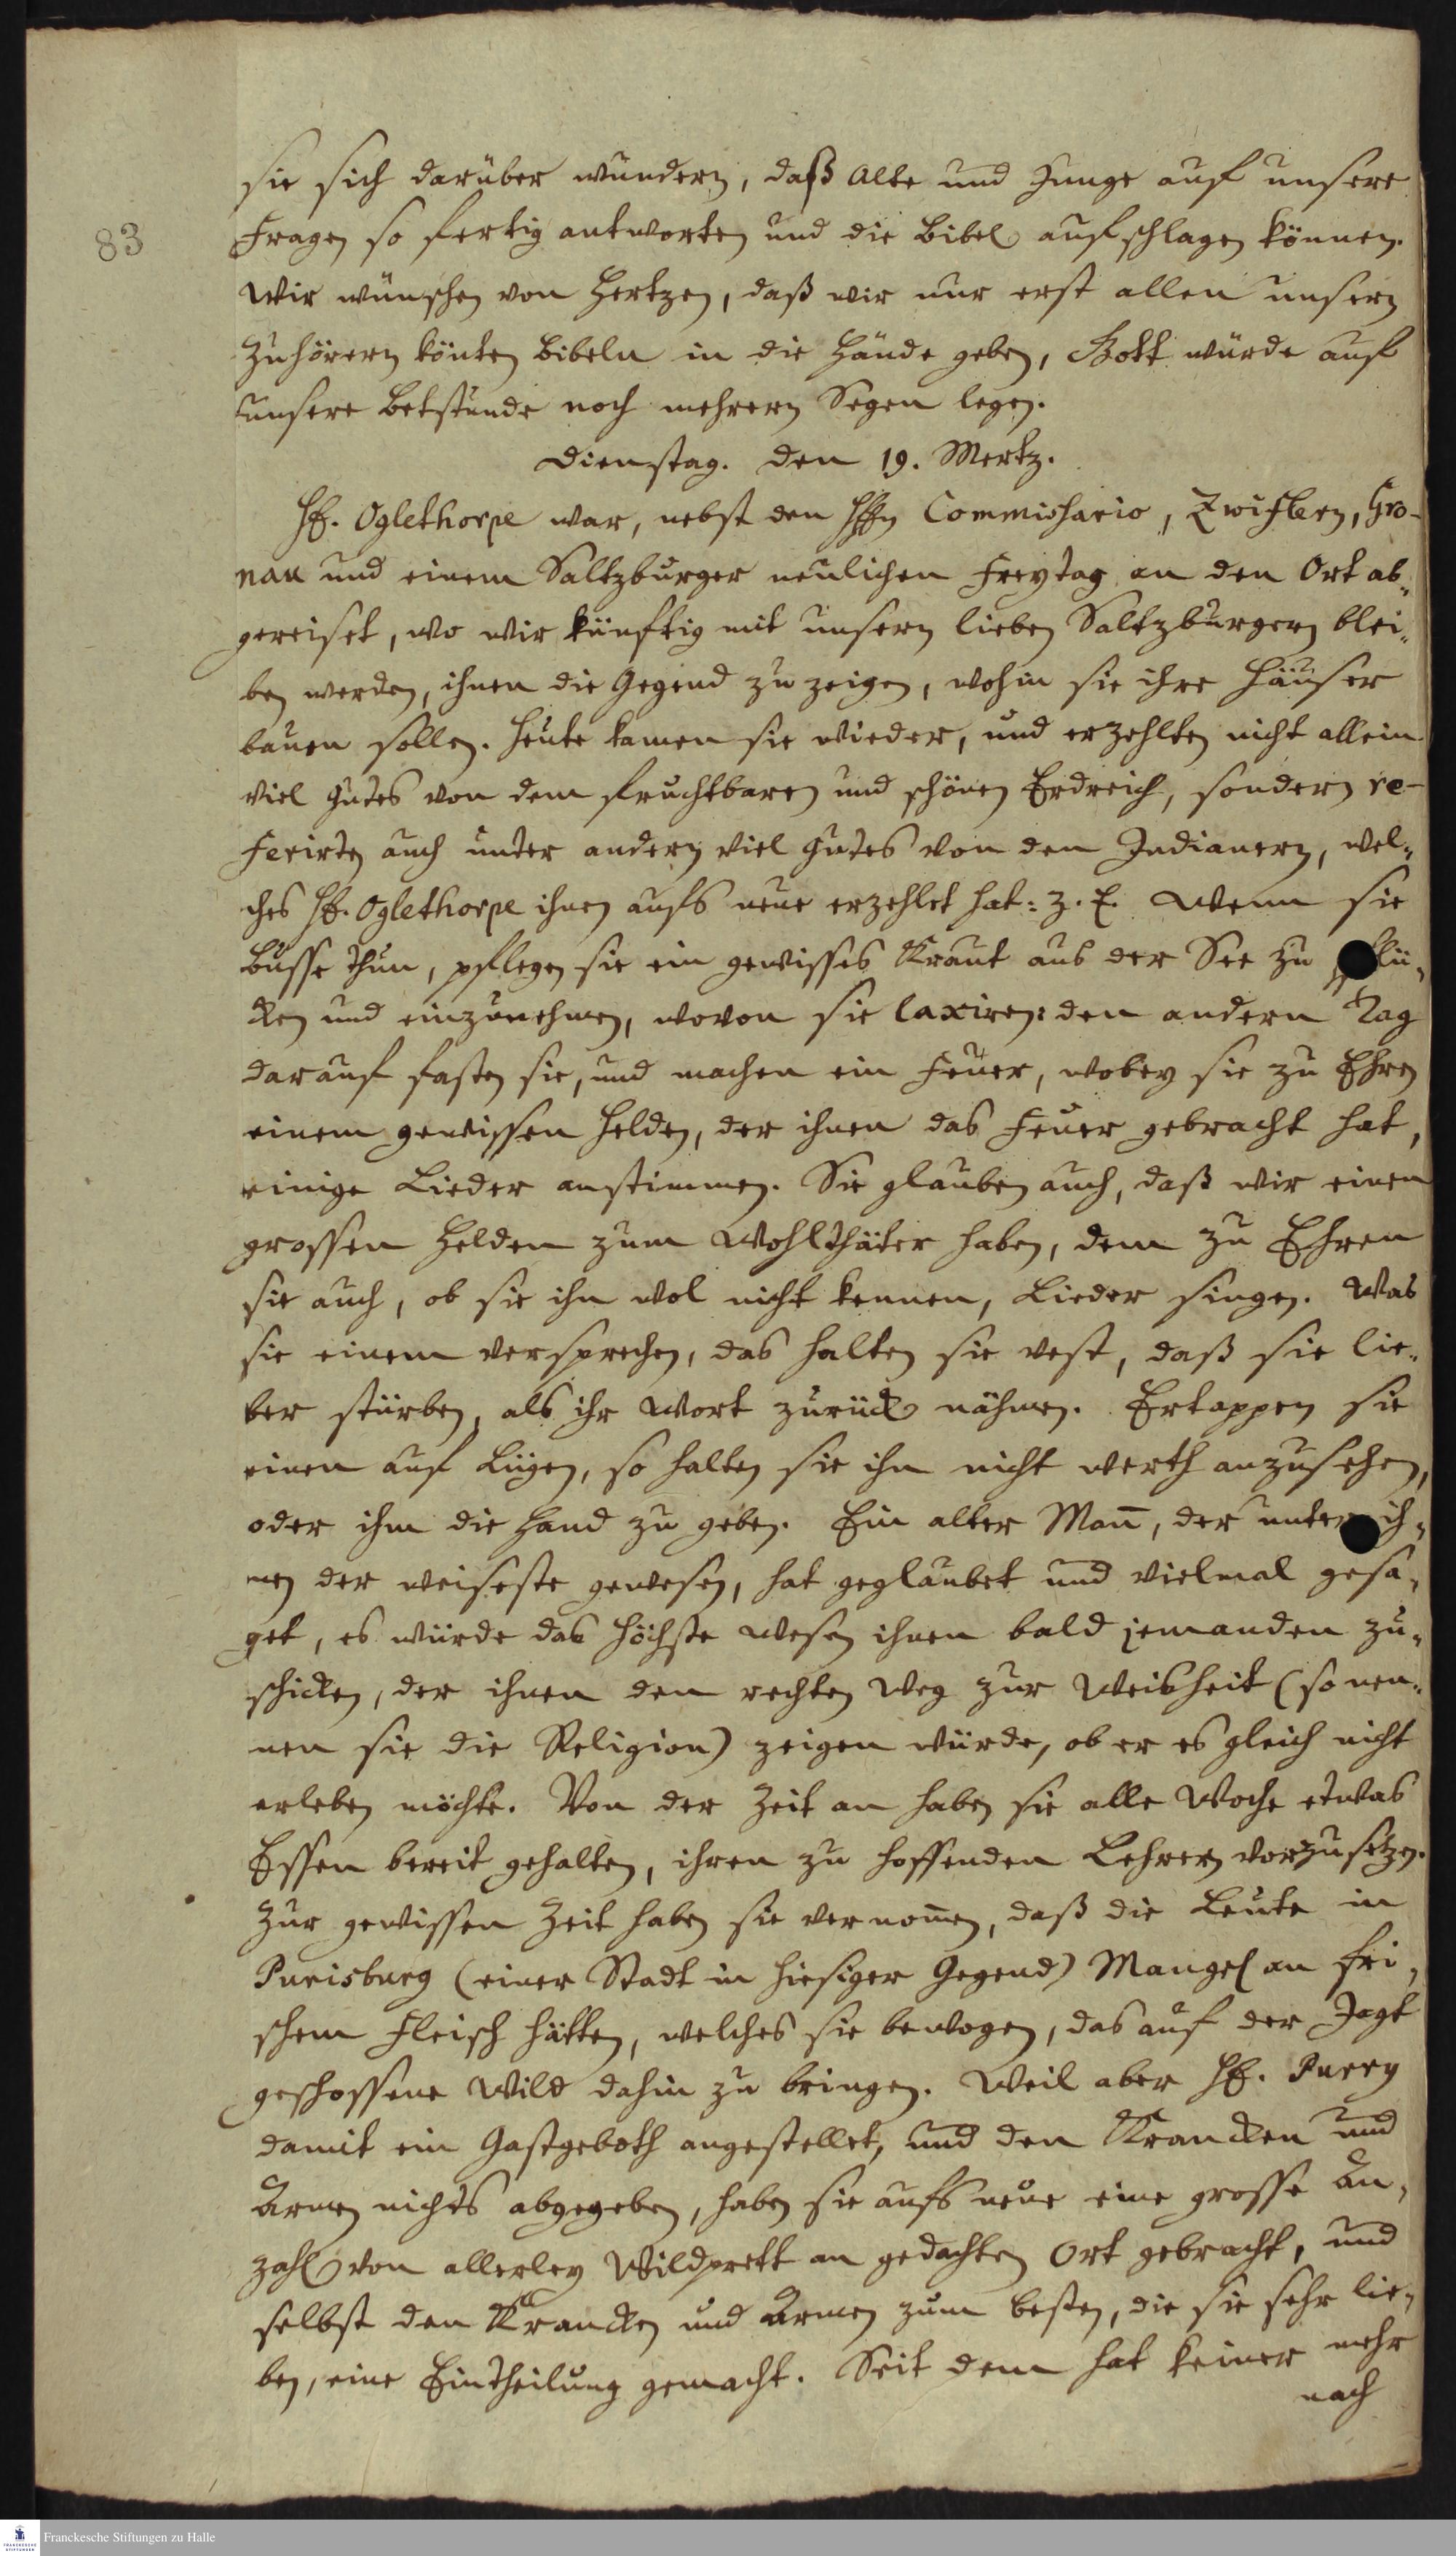 sie sich darüber wundern, daß Alte und Junge auf unsere
83
Fragen so fertig antworten und die Bibel aufschlagen können.
Wir wünschen von Hertzen, daß wir nur erst allen unsern
Zuhörern könten Bibeln in die Hände geben, Gott würde auf
unsere Betstunde noch mehrern Segen legen.
Dienstag. den 19. Mertz.
Hr. Oglethorpe war, nebst den Hrn Commissario, Zwiflern, Gro-
nau und einem Saltzburger neulichen Freytag an den Ort ab-
gereiset, wo wir künftig mit unsern lieben Saltzburgern blei-
ben werden, ihnen die Gegend zu zeigen, wohin sie ihre Häuser
bauen sollen. Heute kamen sie wieder, und erzehlten nicht allein
viel Gutes von dem fruchtbaren und schönen Erdreich, sondern re-
ferirten auch unter andern viel Gutes von den Indianern, wel-
ches Hr. Oglethorpe ihnen aufs neue erzehlet hat: z. E. Wenn sie
Busse thun, pflegen sie ein gewisses Kraut aus der See zu pflü-
cken und einzunehmen, wovon sie laxiren: den andern Tag
darauf fasten sie, und machen ein Feuer, wobey sie zu Ehren
einem gewissen Helden, der ihnen das Feuer gebracht hat,
einige Lieder anstimmen. Sie glauben auch, daß wir einen
grossen Helden zum Wohlthäter haben, dem zu Ehren
sie auch, ob sie ihn wol nicht kennen, Lieder singen. Was
sie einem versprechen, das halten sie vest, daß sie lie-
ber stürben, als ihr Wort zurück nähmen. Ertappen sie
einen auf Lügen, so halten sie ihn nicht werth anzusehen,
oder ihm die Hand zu geben. Ein alter Mañ, der unter ih-
nen der weiseste gewesen, hat geglaubet und vielmal gesa-
get, es würde das höchste Wesen ihnen bald jemanden zu-
schicken, der ihnen den rechten Weg zur Weisheit (so nen-
nen sie die Religion) zeigen würde, ob er es gleich nicht
erleben möchte. Von der Zeit an haben sie alle Woche etwas
Essen bereit gehalten, ihren zu hoffenden Lehrern vorzusetzen.
Zur gewissen Zeit haben sie vernom̃en, daß die Leute in
Purisburg (einer Stadt in hiesiger Gegend) Mangel an fri-
schem Fleisch hätten, welches sie bewogen, das auf der Jagt
geschossene Wild dahin zu bringen. Weil aber Hr. Purry
damit ein Gastgeboth angestellet, und den Krancken und
Armen nichts abgegeben, haben sie aufs neue eine grosse An-
zahl von allerley Wildprett an gedachten Ort gebracht, und
selbst den Krancken und Armen zum besten, die sie sehr lie-
ben, eine Eintheilung gemacht. Seit dem hat keiner mehr
nach
FRANCKESCHE STIFTUNGEN
Franckesche Stiftungen zu Halle